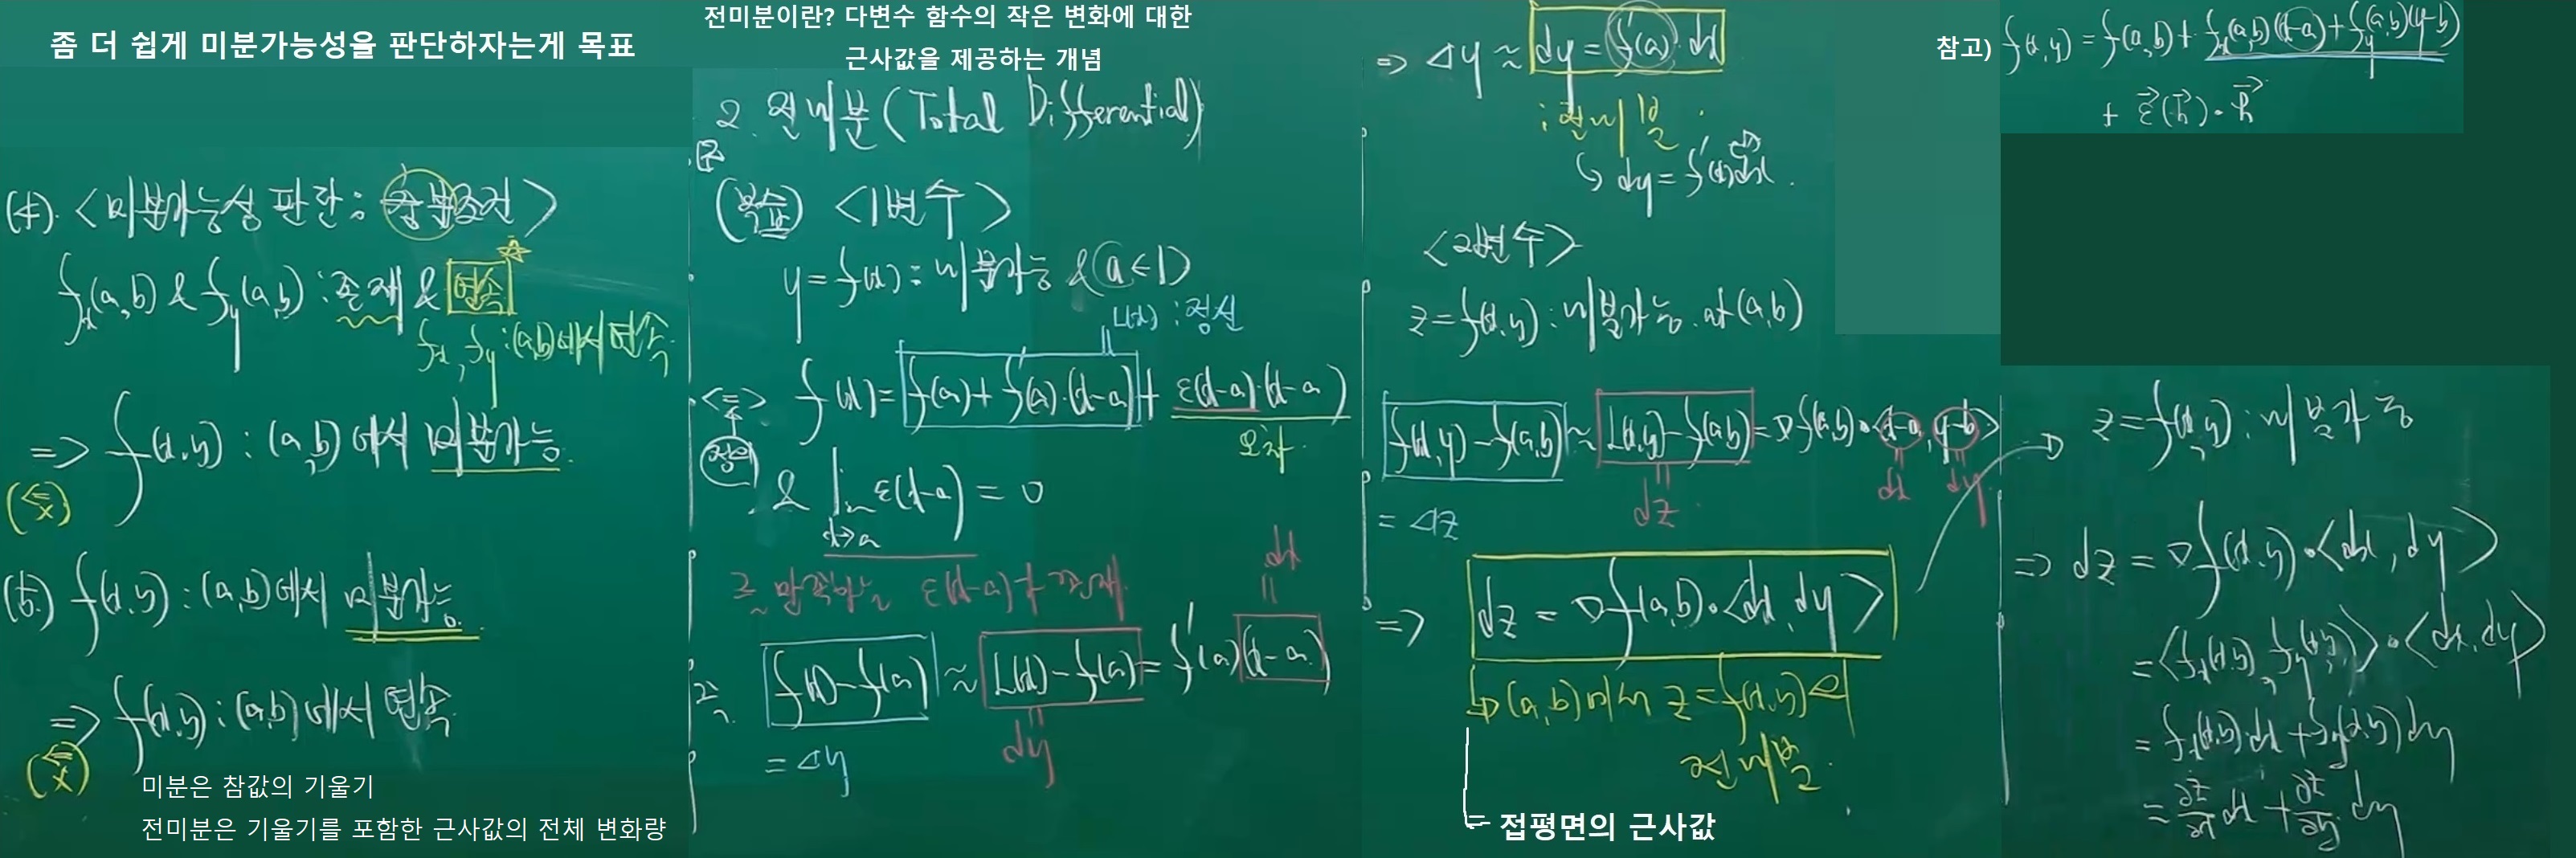 좀 더 쉽게 미분가능성을 판단하자는게 목표
(쉬). <미분가능성 판단 : 충분조건>
fx(a,b) & fy(a,b) : 존재 & 연속
fx, fy : (a,b)에서 연속
=> f(x,y) : (a,b)에서 미분가능.
(<= x)
f(x,y) : (a,b)에서 미분가능.
=> f(x,y) : (a,b)에서 연속
(<= x)
미분은 참값의 기울기
전미분은 기울기를 포함한 근사값의 전체 변화량
전미분이란? 다변수 함수의 작은 변화에 대한
근사값을 제공하는 개념
2. 전미분 (Total Differential)
(복습) <1변수>
y = f(x) : 미분가능 & (a∈I)
L(x) : 접선
<=> f(x) = f(a) + f'(a)·(x-a) + ε(x-a)·(x-a)
정의
오차
& lim ε(x-a) = 0
x→a
를 만족하는 ε(x-a)가 존재
dx
즉. f(x) - f(a) ≈ L(x) - f(a) = f'(a)(x-a)
= Δy
dy
=> Δy ≈ dy = f'(a)·dx
: 전미분.
↳ dy = f'(x)dx.
<2변수>
z = f(x,y) : 미분가능. at (a,b)
f(x,y) - f(a,b) ≈ L(x,y) - f(a,b) = ∇f(a,b)·<x-a, y-b>
= Δz
dz
dx
dy
=> dz = ∇f(a,b)·<dx, dy>
↳ (a,b)에서 z = f(x,y)의
전미분.
= 접평면의 근사값
참고) f(x,y) = f(a,b) + fx(a,b)(x-a) + fy(a,b)(y-b)
+ ε(h)·h
z = f(x,y) : 미분가능
=> dz = ∇f(x,y)·<dx, dy>
= <fx(x,y), fy(x,y)>·<dx, dy>
= fx(x,y)dx + fy(x,y)dy
= ∂z/∂x dx + ∂z/∂y dy